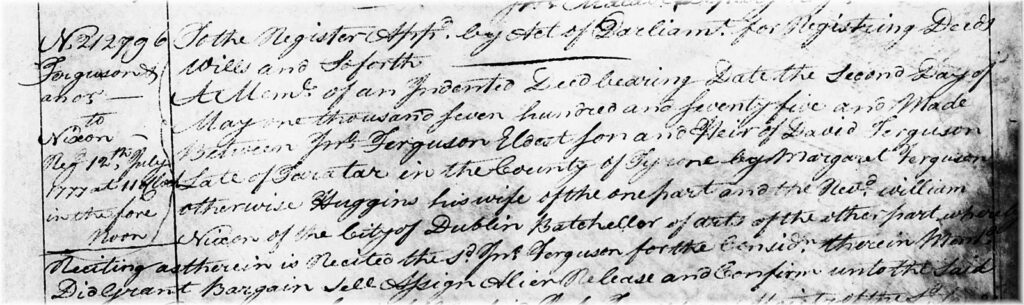 N. 212796
Ferguson &
anor —
to
Nixon
Reg 12th July
1777 at 11 oClock
in the fore
Noon
To the Register Appd. by Act of Parliamt. for Registring Deeds
Wills and Soforth
A Meml. of an Indented Deed bearing Date the Second Day of
May one thousand seven hundred and seventy five and Made
Between Jno. Ferguson Eldest son and Heir of David Ferguson
Late of in the County of Tyrone by Margaret Ferguson
otherwise Huggins his wife of the one part and the Revd. william
Nixon of the City of Dublin Batchellor of arts of the other part, whereby
Reciting as therein is Recited the Sd. Jno. Ferguson for the Considn. therein Mentd.
Did Grant Bargain Sell Assign Alien Release and Confirm unto the Said